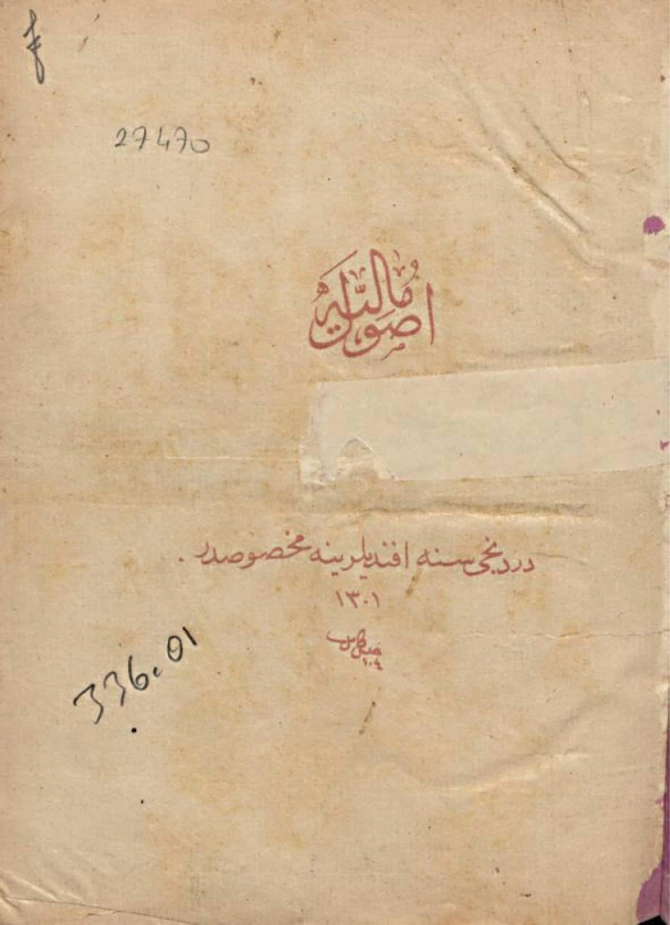 27470
اصول مالیه
دردنجی سنه افندیلرینه مخصوصدر .
١٣٠١
336.01